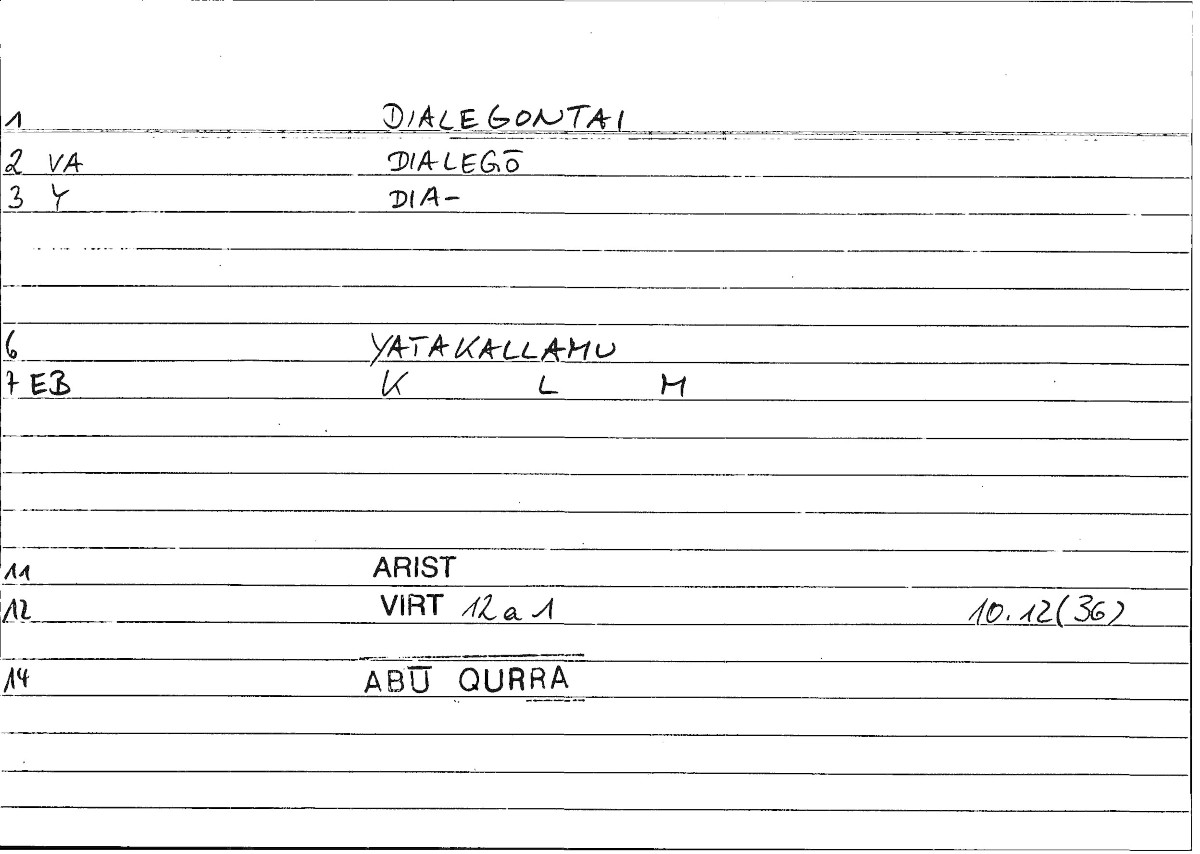 1 DIALEGONTAI
2 VA DIALEGŌ
3 Y DIA-
6 YATAKALLAMU
7 EB K L M
11 ARIST
12 VIRT 12a1 10.12(36)
14 ABŪ QURRA